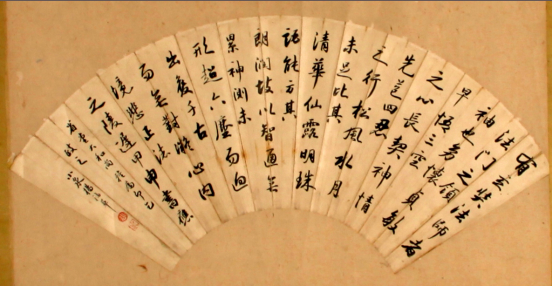 有玄奘法師者
法門之領
袖也幼懷貞敏
早悟三空
之心長契神情
先苞四忍
之行松風水月
未足比其
清華仙露明珠
詎能方其
朗潤故以智通無
累神測未
形超六塵而迥
出隻千古
而無對凝心內
境悲正法
之陵遲甲申書